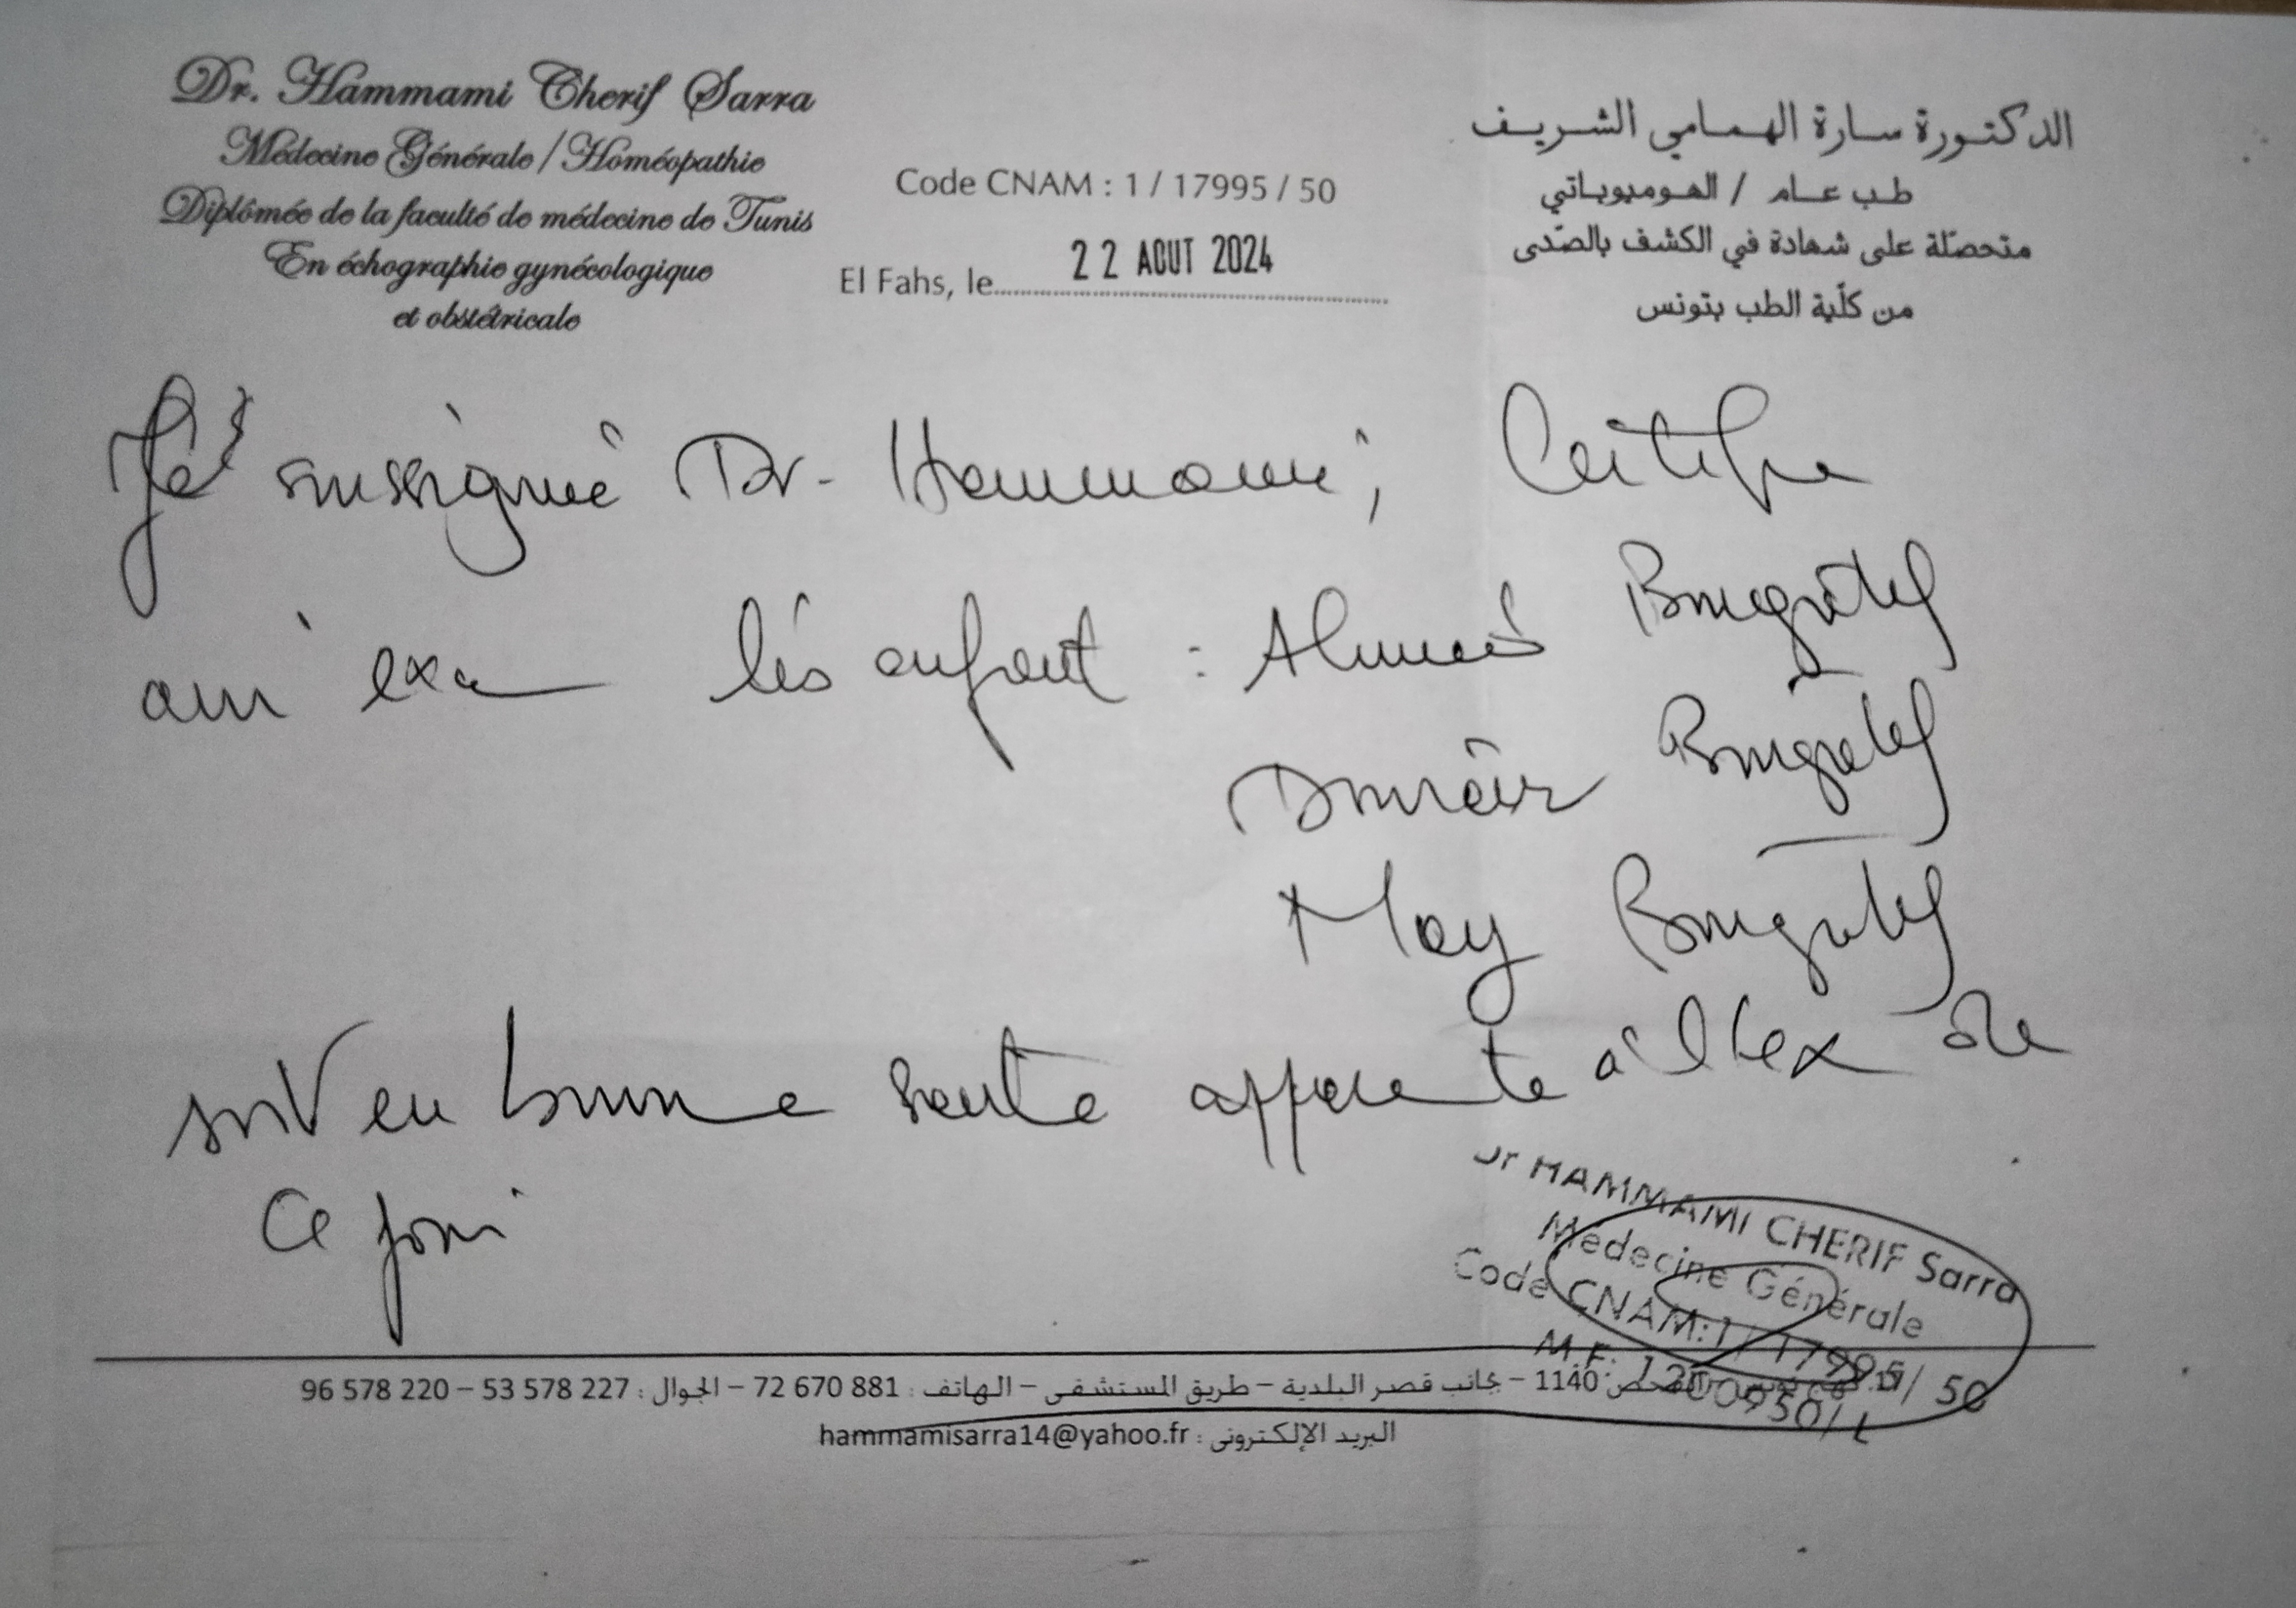 Dr. Hammami Cherif Sarra
Médecine Générale / Homéopathie
Diplômée de la faculté de médecine de Tunis
En échographie gynécologique
et obstétricale
Code CNAM : 1 / 17995 / 50
El Fahs, le 22 AOUT 2024
الدكتورة سارة الهمامي الشريف
طب عام / الهوميوباتي
متحصّلة على شهادة في الكشف بالصّدى
من كلّية الطب بتونس
Je sussignée Dr. Hammami, Certifie
avoir exa les enfant : Ahmed
May
sont en bonne sante apparente à l'ex de
ce jour
Dr HAMMAMI CHERIF Sarra
Médecine Générale
Code CNAM: 1 / 17995 / 50
M.F:
الفحص 1140 – بجانب قصر البلدية – طريق المستشفى – الهاتف : 72 670 881 – الجوال : 53 578 227 – 96 578 220
البريد الإلكتروني : hammamisarra14@yahoo.fr